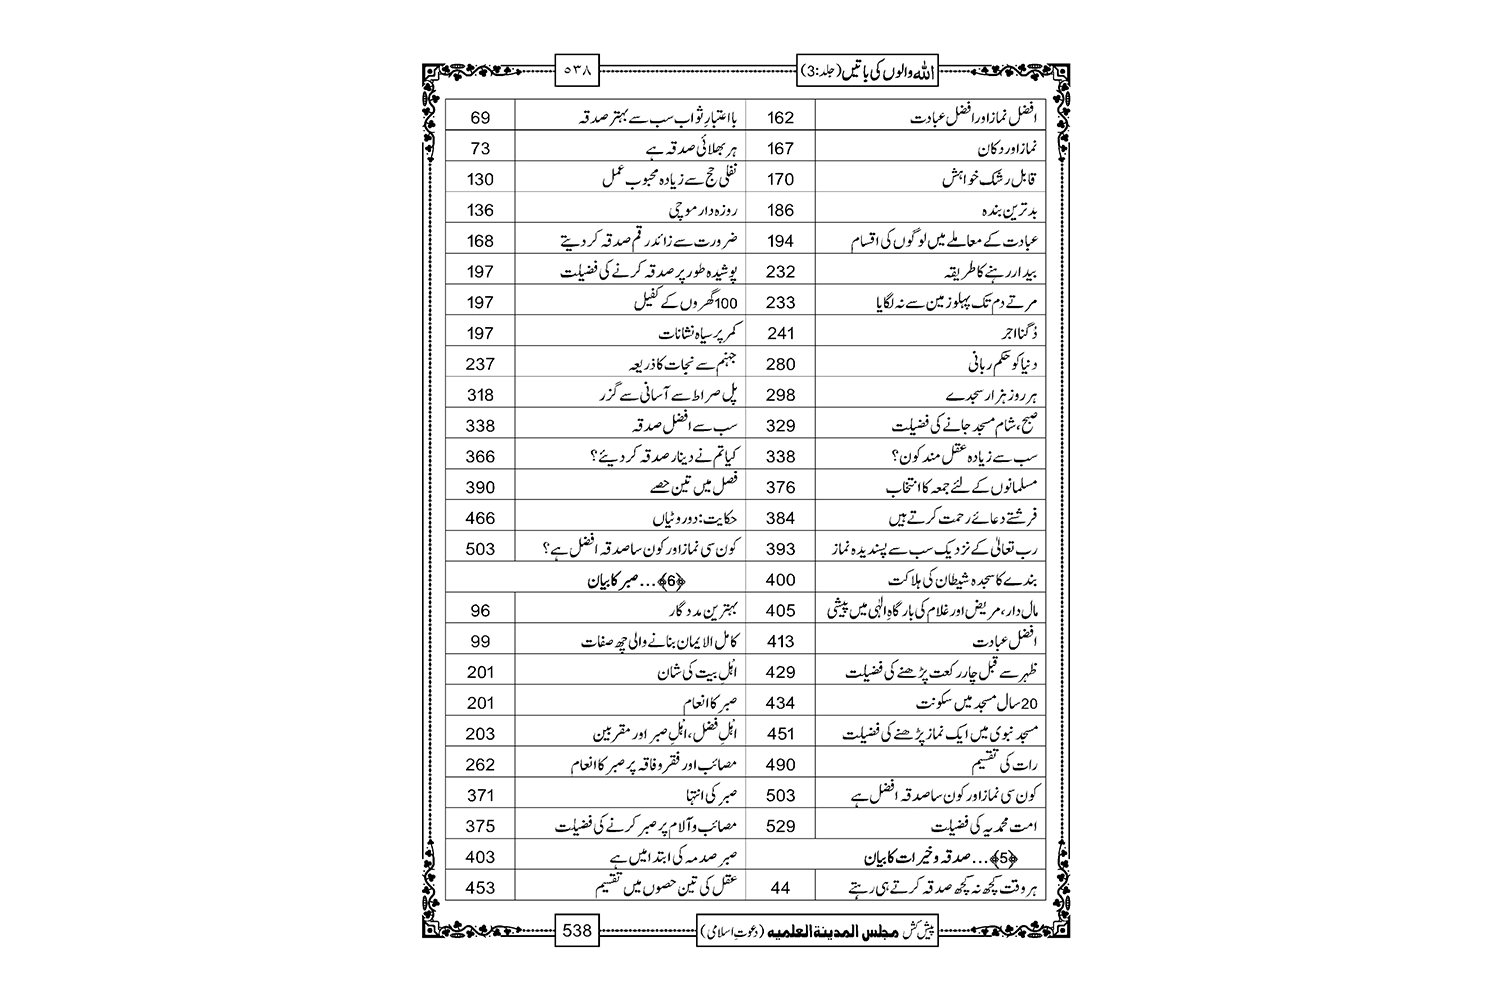 اللہ والوں کی باتیں (جلد:3)
٥٣٨
افضل نماز اور افضل عبادت 162
نماز اور دکان 167
قابل رشک خواہش 170
بدترین بندہ 186
عبادت کے معاملے میں لوگوں کی اقسام 194
بیدار رہنے کا طریقہ 232
مرتے دم تک پہلو زمین سے نہ لگایا 233
دُگنا اجر 241
دنیا کو حکم ربانی 280
ہر روز ہزار سجدے 298
صبح، شام مسجد جانے کی فضیلت 329
سب سے زیادہ عقل مند کون؟ 338
مسلمانوں کے لئے جمعہ کا انتخاب 376
فرشتے دعائے رحمت کرتے ہیں 384
رب تعالیٰ کے نزدیک سب سے پسندیدہ نماز 393
بندے کا سجدہ شیطان کی ہلاکت 400
مال دار، مریض اور غلام کی بارگاہِ الٰہی میں پیشی 405
افضل عبادت 413
ظہر سے قبل چار رکعت پڑھنے کی فضیلت 429
20 سال مسجد میں سکونت 434
مسجد نبوی میں ایک نماز پڑھنے کی فضیلت 451
رات کی تقسیم 490
کون سی نماز اور کون سا صدقہ افضل ہے 503
امت محمدیہ کی فضیلت 529
﴿5﴾... صدقہ و خیرات کا بیان
ہر وقت کچھ نہ کچھ صدقہ کرتے ہی رہتے 44
با اعتبارِ ثواب سب سے بہتر صدقہ 69
ہر بھلائی صدقہ ہے 73
نفلی حج سے زیادہ محبوب عمل 130
روزہ دار موچی 136
ضرورت سے زائد رقم صدقہ کر دیتے 168
پوشیدہ طور پر صدقہ کرنے کی فضیلت 197
100 گھروں کے کفیل 197
کمر پر سیاہ نشانات 197
جہنم سے نجات کا ذریعہ 237
پل صراط سے آسانی سے گزر 318
سب سے افضل صدقہ 338
کیا تم نے دینار صدقہ کر دیئے؟ 366
فصل میں تین حصے 390
حکایت: دو روٹیاں 466
کون سی نماز اور کون سا صدقہ افضل ہے؟ 503
﴿6﴾... صبر کا بیان
بہترین مددگار 96
کامل الایمان بنانے والی چھ صفات 99
اہْلِ بیت کی شان 201
صبر کا انعام 201
اہْلِ فضل، اہْلِ صبر اور مقربین 203
مصائب اور فقر و فاقہ پر صبر کا انعام 262
صبر کی انتہا 371
مصائب و آلام پر صبر کرنے کی فضیلت 375
صبر صدمہ کی ابتدا میں ہے 403
عقل کی تین حصوں میں تقسیم 453
پیش کش مجلس المدینة العلمیه (دعوتِ اسلامی)
538